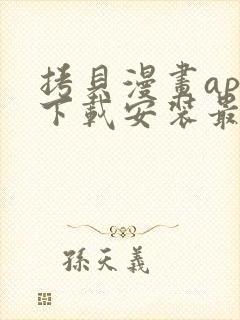 拷貝漫畫ap
下載安裝最
孫天義